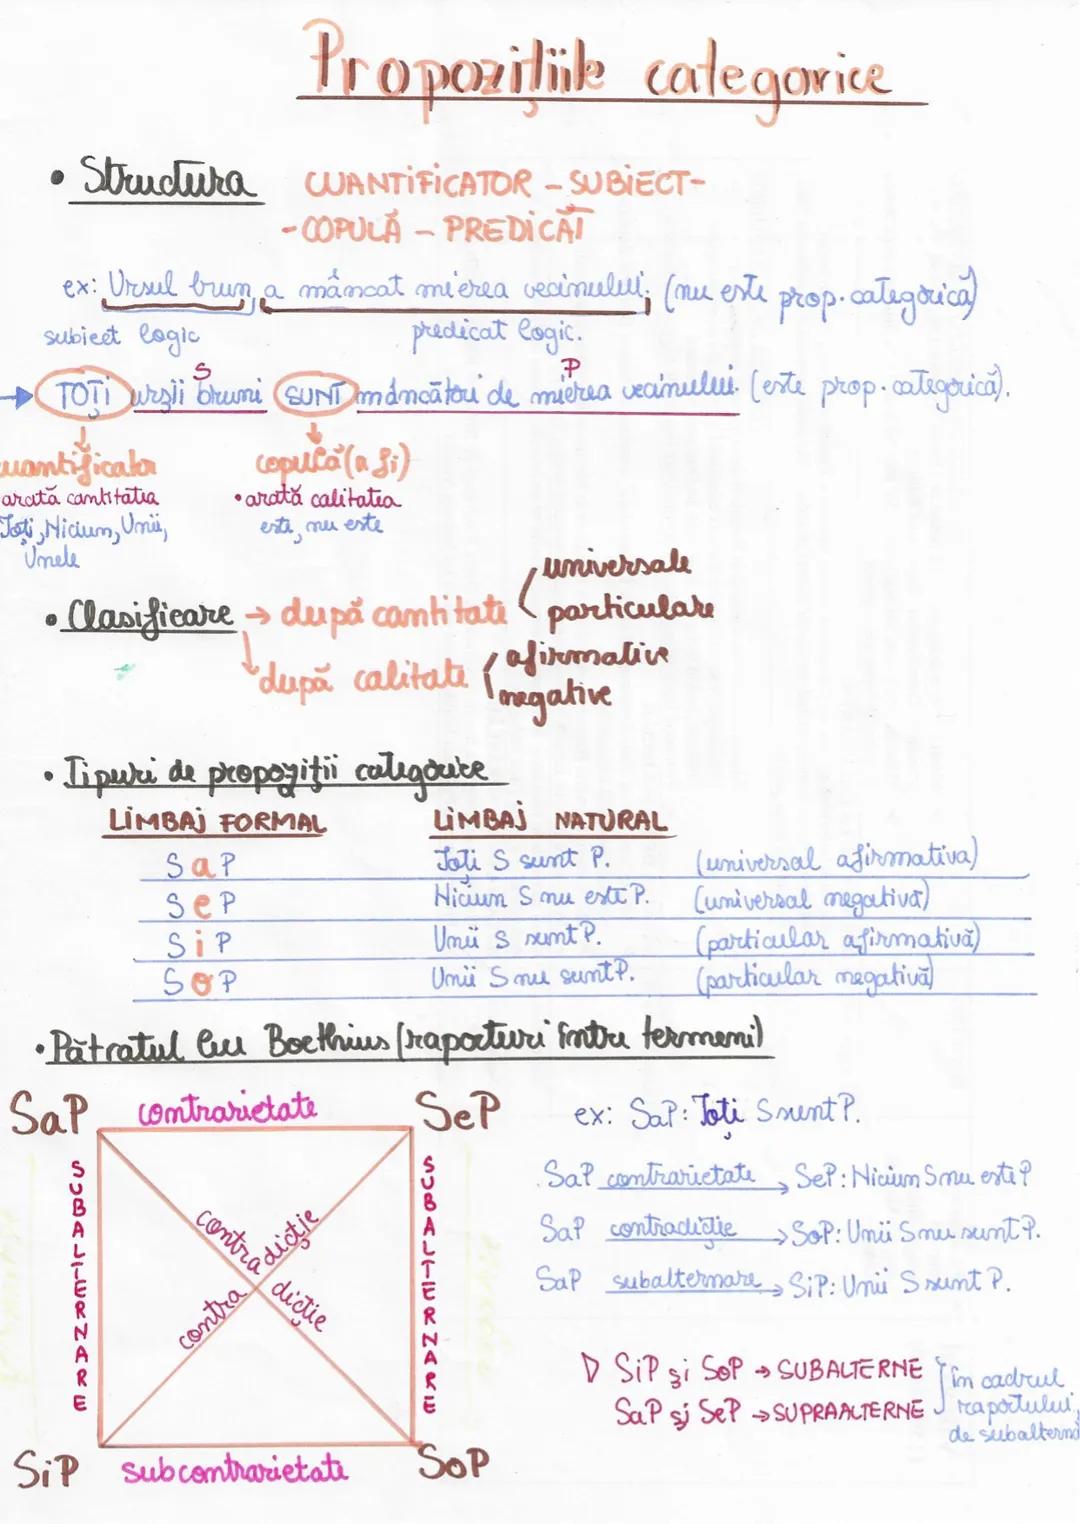 Propozițiile categorice
• Structura CUANTIFICATOR - SUBIECT-
- COPULĂ - PREDICAT
ex: Ursul brun a mâncat mierea vecinului; (nu este prop. categorică)
subiect logic predicat logic.
S P
→ TOȚI urșii bruni SUNT mâncători de mierea vecinului. (este prop. categorică).
cuantificator copulă (a fi)
arată cantitatea • arată calitatea
Toți, Niciun, Unii, este, nu este
Unele
universale
• Clasificare → după cantitate particulare
afirmative
după calitate negative
• Tipuri de propoziții categorice
LIMBAJ FORMAL LIMBAJ NATURAL
SaP Toți S sunt P. (universal afirmativa)
SeP Niciun S nu este P. (universal negativă)
SiP Unii S sunt P. (particular afirmativă)
SoP Unii S nu sunt P. (particular negativă)
• Pătratul lui Boethius (raporturi între termeni)
SaP contrarietate SeP
SUBALTERNARE
contradicție
contra dicție
SUBALTERNARE
SiP subcontrarietate SoP
ex: SaP: Toți S sunt P.
SaP contrarietate → SeP: Niciun S nu este P
SaP contradicție → SoP: Unii S nu sunt P.
SaP subalternare → SiP: Unii S sunt P.
▷ SiP și SoP → SUBALTERNE } în cadrul
SaP și SeP → SUPRAALTERNE raportului